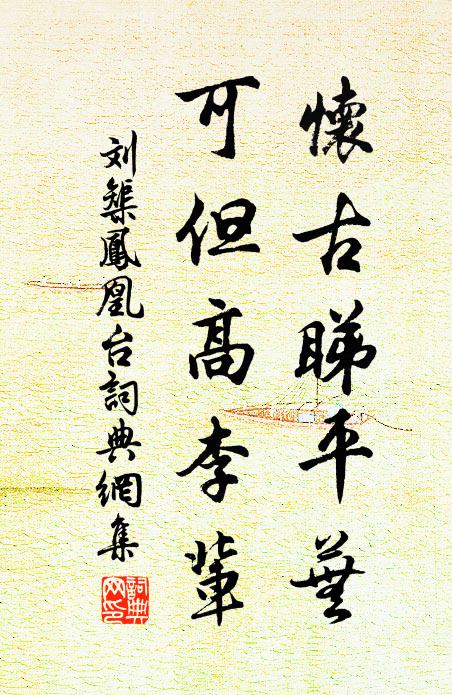 懷古睇平蕪
可但高李輩
刘榘鳳凰台詞典網集
詞典
网印